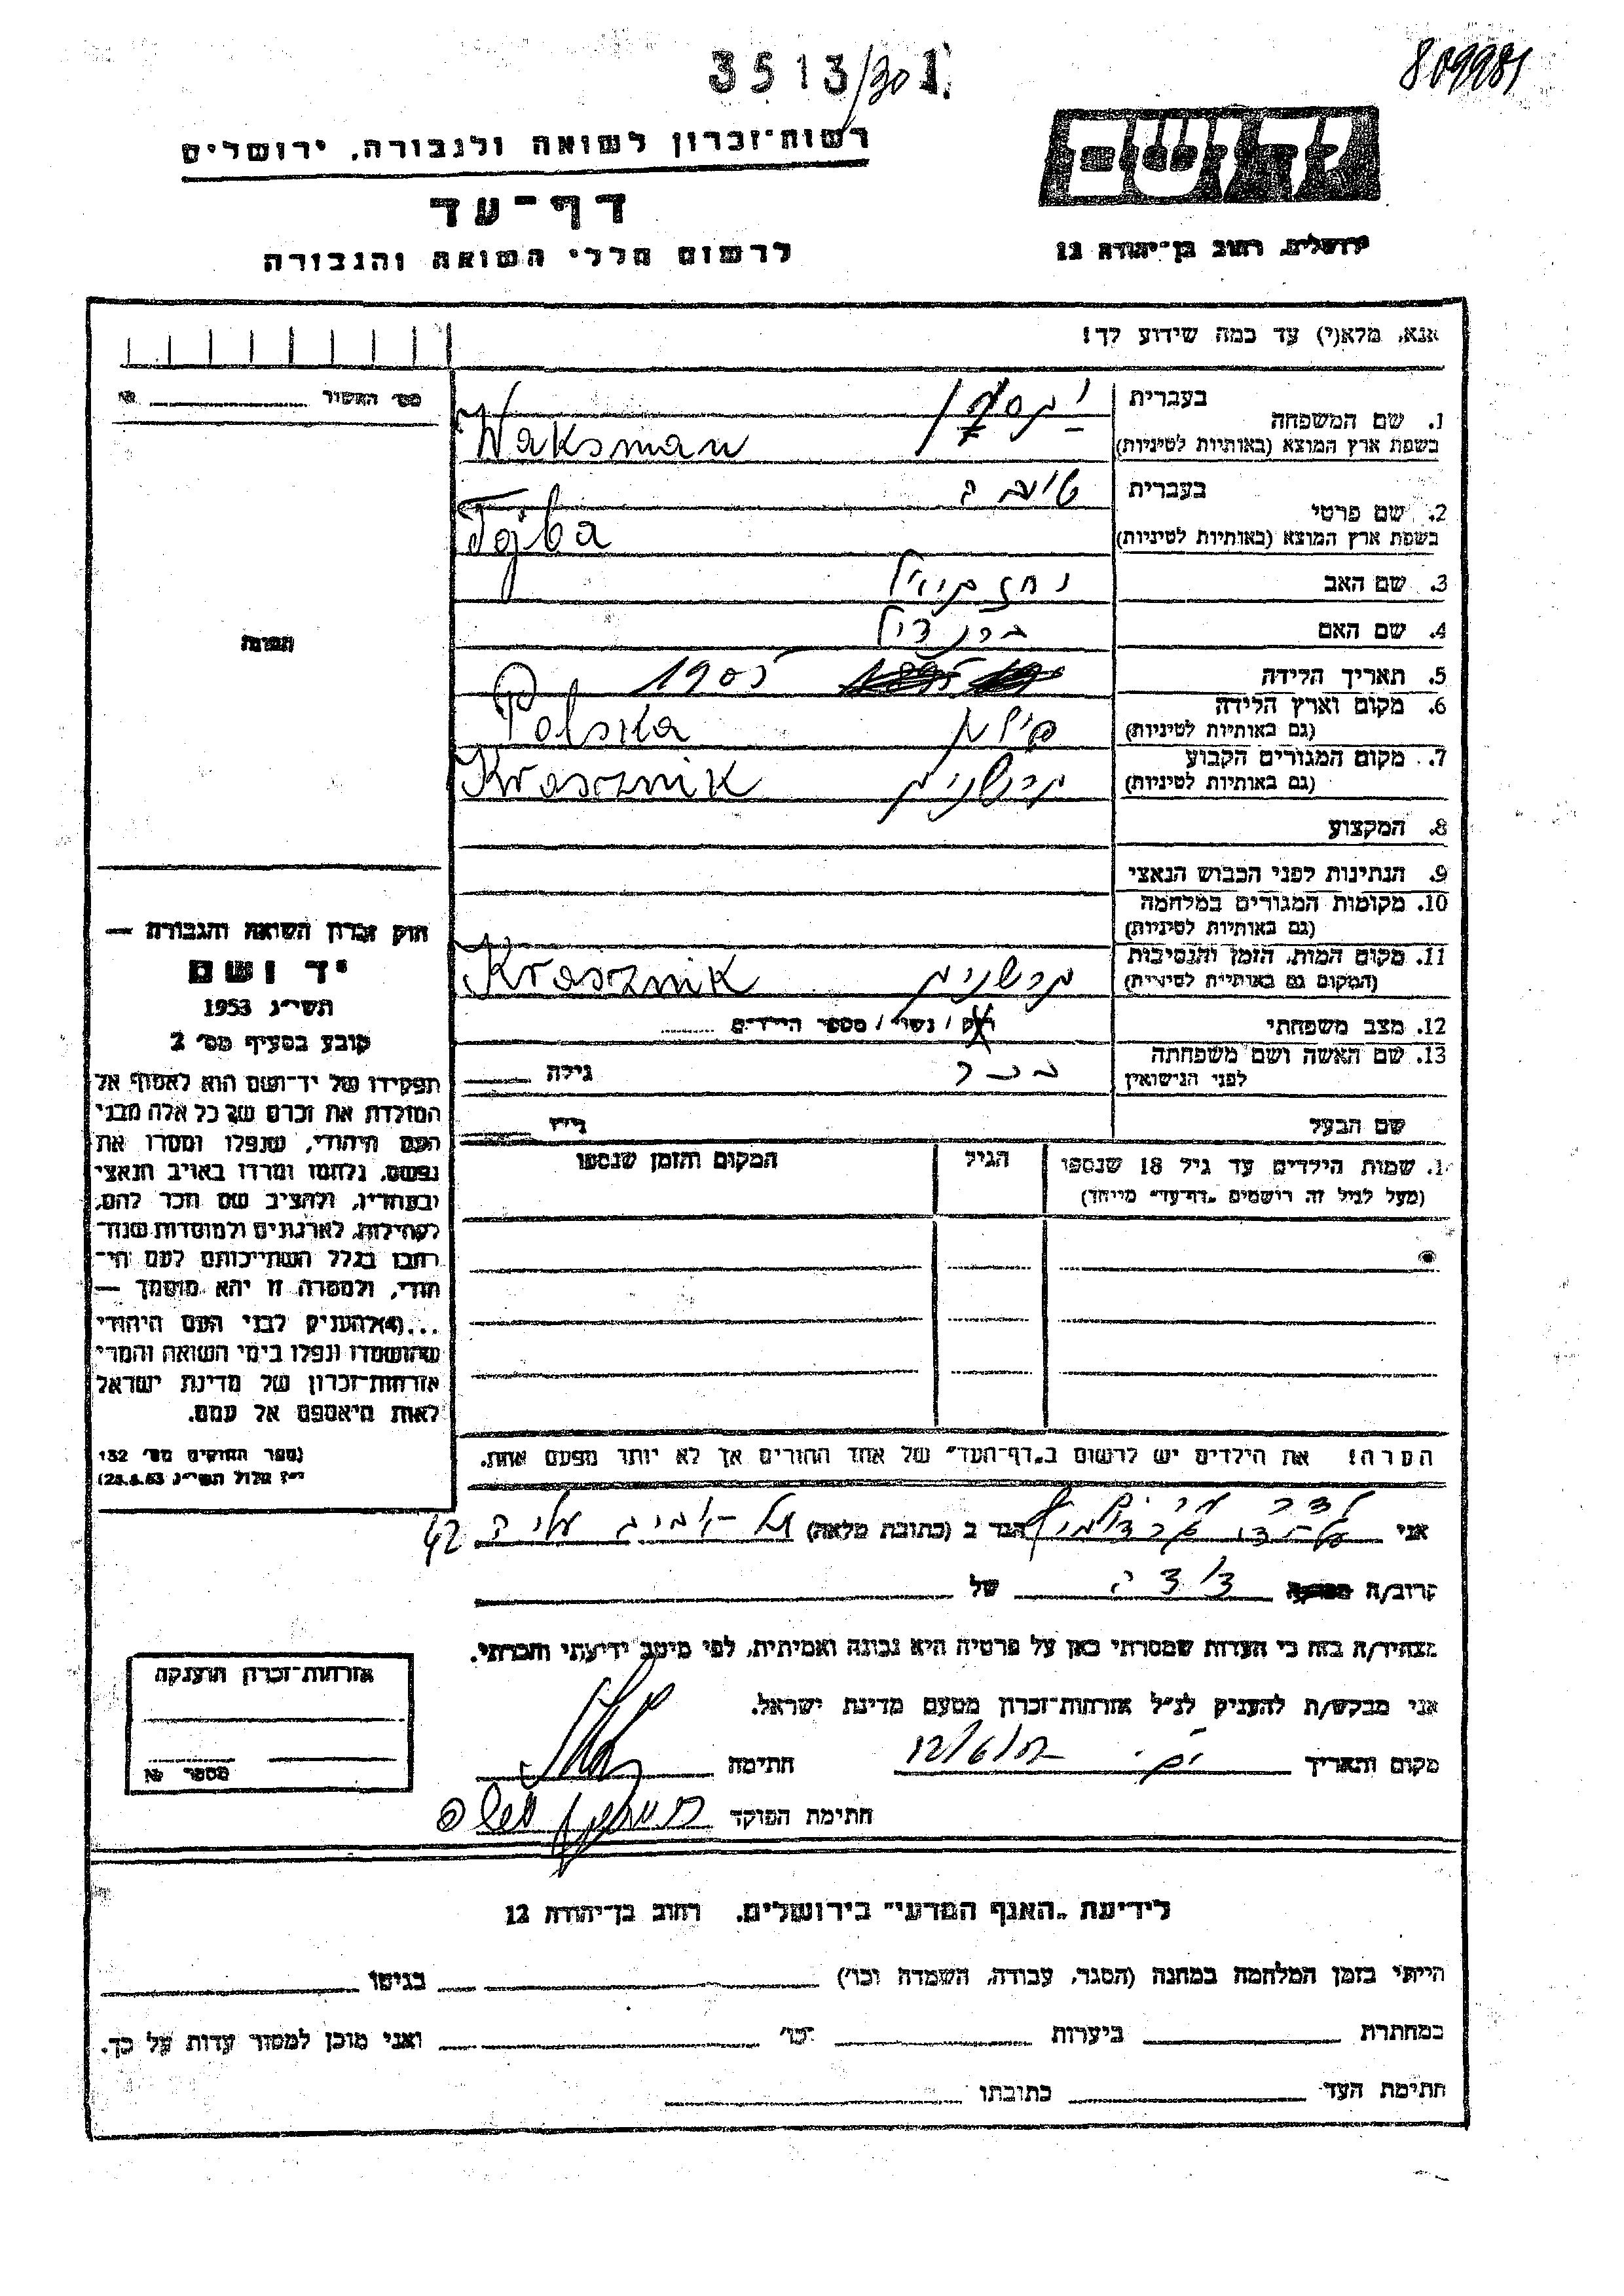 3513/301
809981
רשות־זכרון לשואה ולגבורה, ירושלים
דף־עד
לרשום חללי השואה והגבורה
יד ושם
ירושלים, רחוב בן־יהודה 12
אנא, מלא(י) עד כמה שידוע לך!
מס׳ האשור
1. שם המשפחה
בעברית
בשפת ארץ המוצא (באותיות לטיניות)
Waksman
2. שם פרטי
בעברית טויבה
בשפת ארץ המוצא (באותיות לטיניות)
Tojba
3. שם האב
4. שם האם
5. תאריך הלידה 1905
6. מקום וארץ הלידה
(גם באותיות לטיניות)
פולין Polska
7. מקום המגורים הקבוע
(גם באותיות לטיניות)
קרשניק Krasznik
8. המקצוע
9. הנתינות לפני הכבוש הנאצי
10. מקומות המגורים במלחמה
(גם באותיות לטיניות)
11. מקום המות, הזמן והנסיבות
(המקום גם באותיות לטיניות)
קרשניק Krasznik
12. מצב משפחתי
רוק / נשוי / מספר הילדים
13. שם האשה ושם משפחתה
לפני הנישואין
גילה
שם הבעל
גילו
שמות הילדים עד גיל 18 שנספו
(מעל לגיל זה רושמים „דף־עד” מיוחד)
הגיל
המקום והזמן שנספו
הערה: את הילדים יש לרשום ב„דף־העד” של אחד ההורים אך לא יותר מפעם אחת.
תמונה
חוק זכרון השואה והגבורה —
יד ושם
תשי״ג 1953
קובע בסעיף מס׳ 2
תפקידו של יד־ושם הוא לאסוף אל
המולדת את זכרם של כל אלה מבני
העם היהודי, שנפלו ומסרו את
נפשם, נלחמו ומרדו באויב הנאצי
ובעוזריו, ולהציב שם וזכר להם,
לקהילות, לארגונים ולמוסדות שנח־
רבו בגלל השתייכותם לעם הי־
הודי, ולמטרה זו יהא מוסמך —
...(4) להעניק לבני העם היהודי
שהושמדו ונפלו בימי השואה והמרי
אזרחות־זכרון של מדינת ישראל
לאות היאספם אל עמם.
(ספר החוקים מס׳ 132
י״ז אלול תשי״ג 28.8.53)
אני
הגר ב (כתובת מלאה) תל-אביב עליה 42
קרוב/ה
דודה של
מצהיר/ה בזה כי העדות שמסרתי כאן על פרטיה היא נכונה ואמיתית, לפי מיטב ידיעתי והכרתי.
אני מבקש/ת להעניק לנ״ל אזרחות־זכרון מטעם מדינת ישראל.
מקום ותאריך
חתימה
חתימת הפוקד
אזרחות־זכרון הוענקה
מספר №
לידיעת „האגף המדעי” בירושלים, רחוב בן־יהודה 12
הייתי בזמן המלחמה במחנה (הסגר, עבודה, השמדה וכו׳) בגיטו
במחתרת ביערות וכו׳ ואני מוכן למסור עדות על כך.
חתימת העד כתובתו